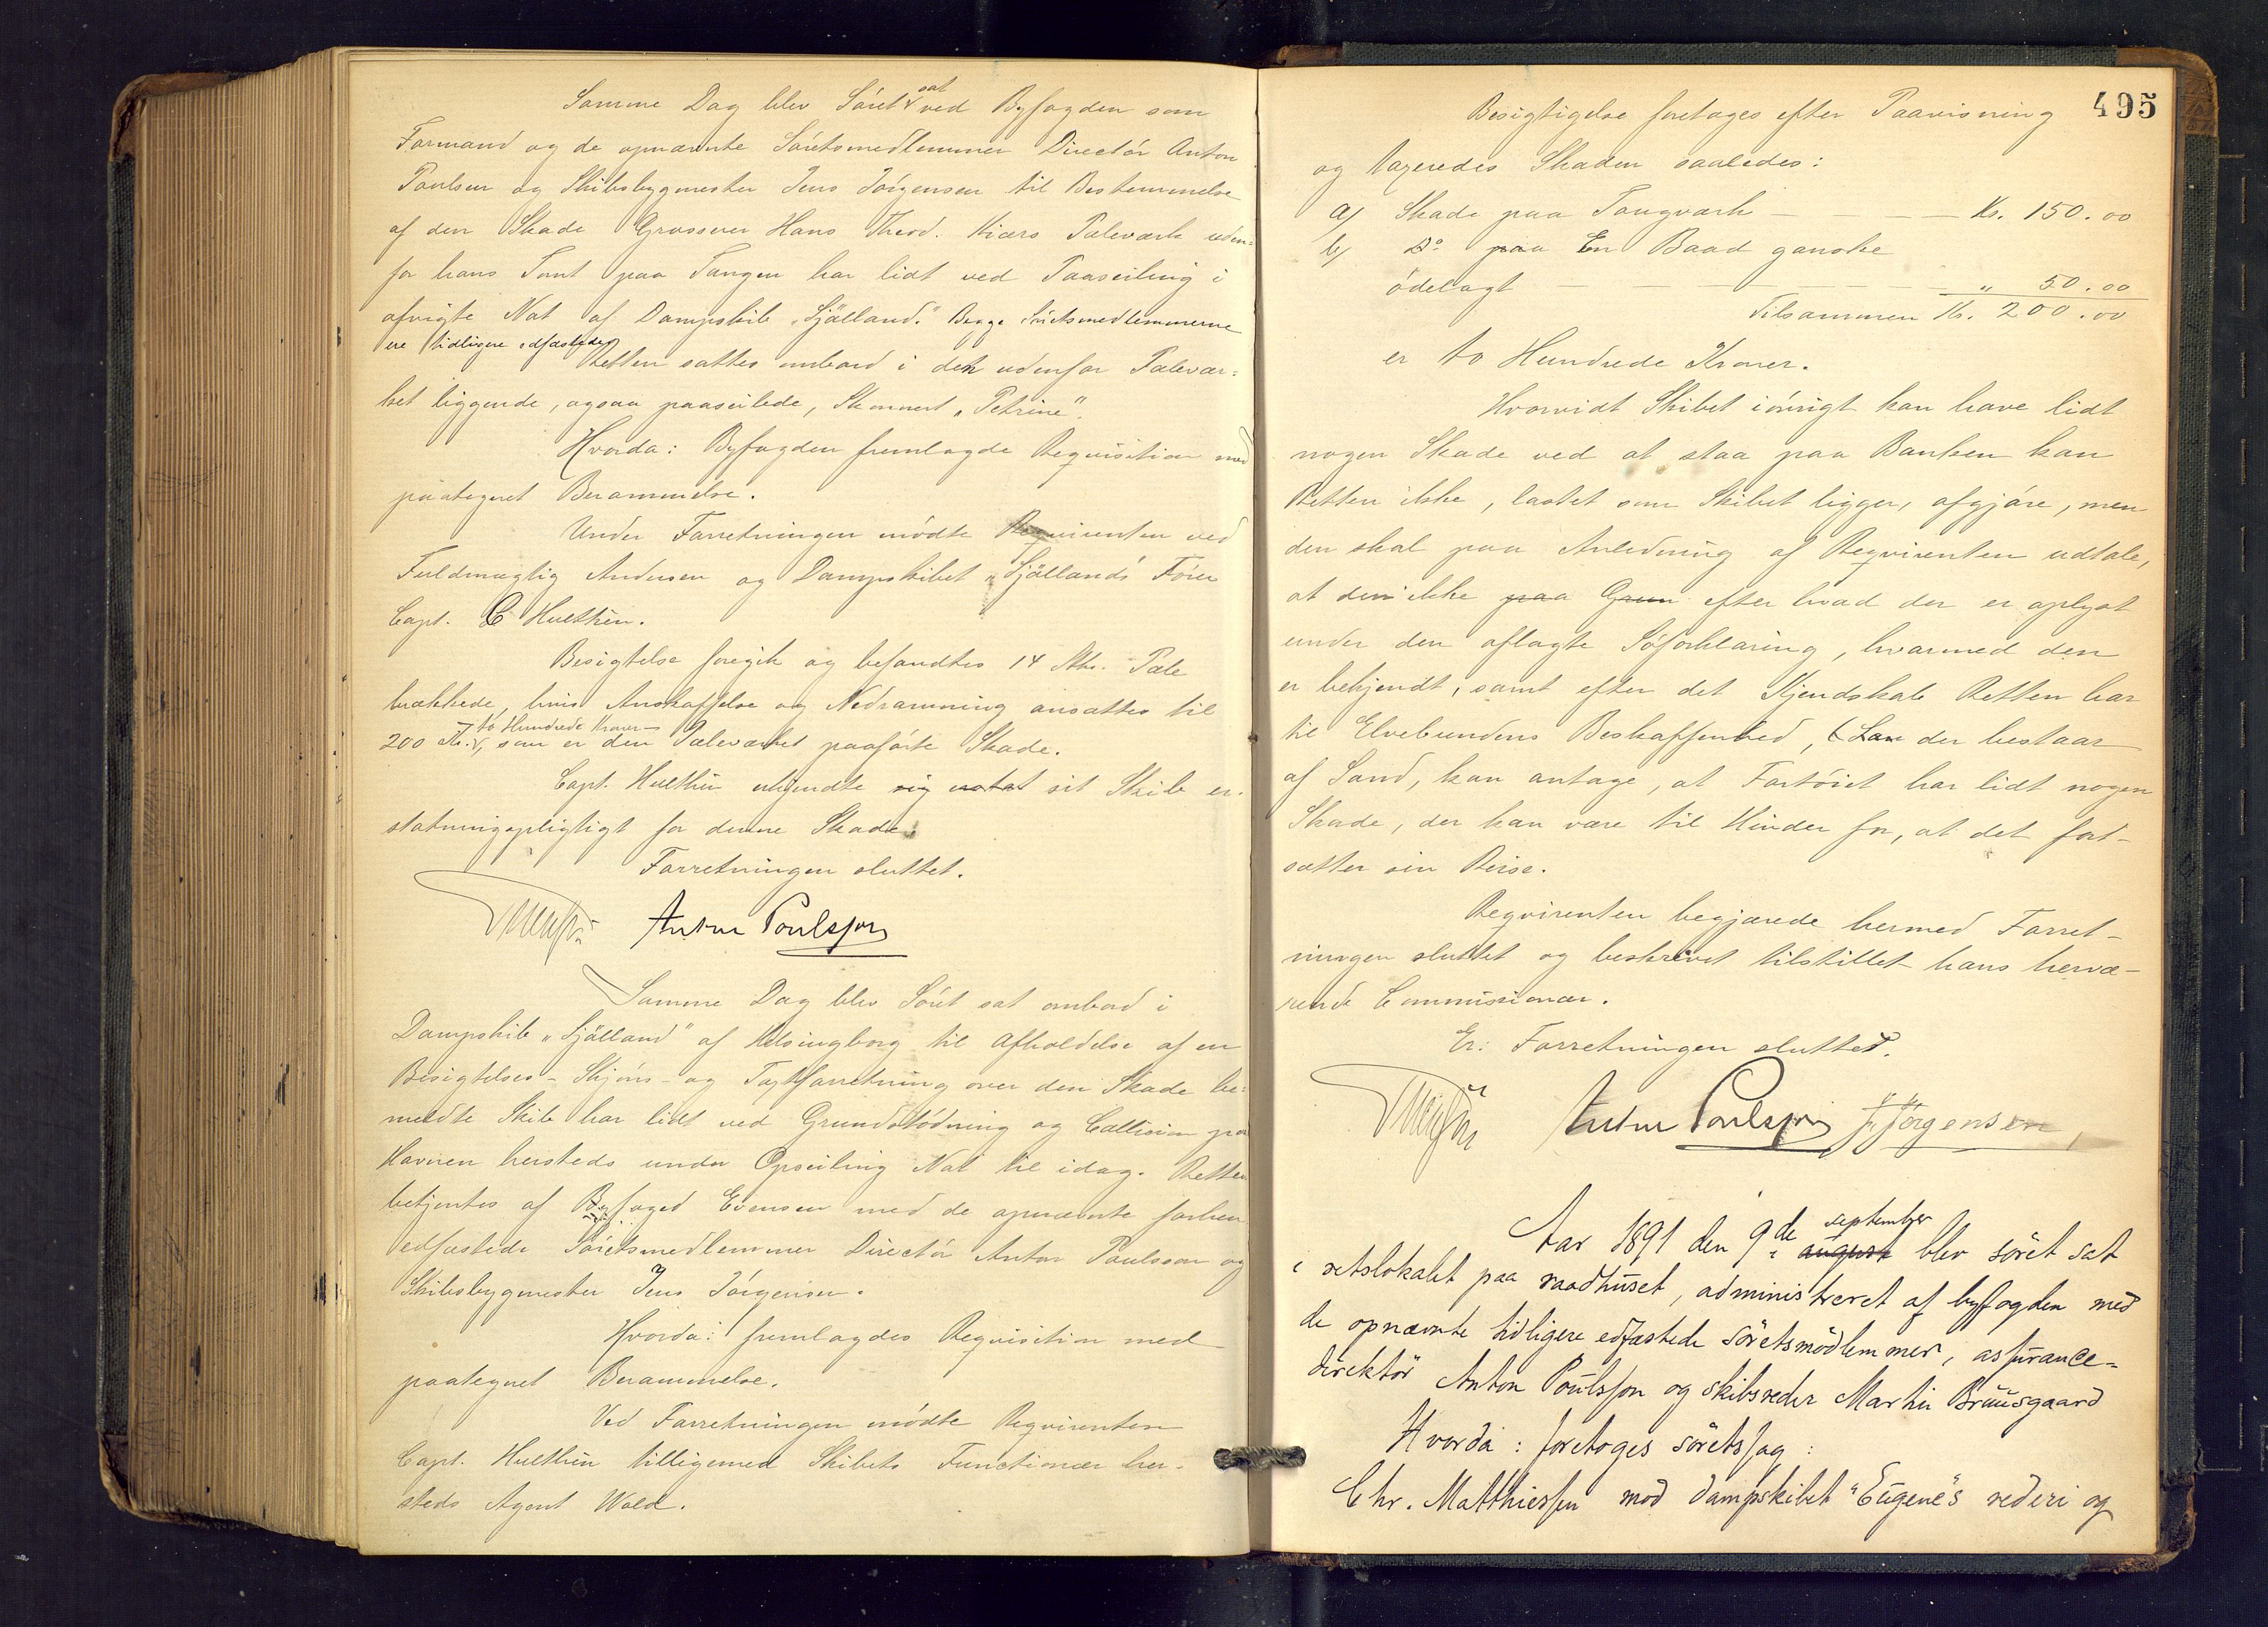 Samme Dag blev Söret sat ved Byfogden som
Formand og de opnævnte Söretsmedlemmer Directör Anton
Poulsen og Skibsbygmester Jens Jörgensen til Bestemmelse
af den Skade Grosserer Hans Theod. Kiærs Pæleværk uden-
for hans Tomt paa Tangen har lidt ved Paaseiling i
afvigte Nat af Dampskib "Sjælland." Begge Söretsmedlemmerne
ere tidligere edfæstede.
Retten sattes ombord i den udenfor Pælevær-
ket liggende, ogsaa paaseilede, Skonnert "Petrine".
Hvorda: Byfogden fremlagde Requisition med
paategnet Berammelse.
Under Forretningen mödte Reqvirenten ved
Fuldmægtig Andersen og Dampskibet "Sjællands" Förer
Capt. C Hulthin.
Besigtelse foregik og befandtes 14 Stkr. Pæle
brækkede, hvis Anskaffelse og Nedramning ansattes til
200 Kr., to Hundrede Kroner som er den Pæleværket paaförte Skade.
Capt. Hulthin erkjendte sig sit Skib er-
statningspligtigt for denne Skade.
Forretningen sluttet.
Anton Poulsson
Samme Dag blev Söret sat ombord i
Dampskib "Sjælland" af Helsingborg til Afholdelse af en
Besigtelses- Skjöns- og Taxtforretning over den Skade be-
meldte Skib har lidt ved Grundstödning og Collision paa
Havnen hersteds under Opseiling Nat til idag. Retten
betjentes af Byfoged Evensen med de opnævnte forhen
edfæstede Söretsmedlemmer Directör Anton Poulsson og
Skibsbygmester Jens Jörgensen.
Hvorda: fremlagdes Requisition med
paategnet Berammelse.
Ved Forretningen mödte Reqvirenten
Capt. Hulthin tilligemed Skibets Functionær her-
steds Agent Wold.
495
Besigtigelse foretoges efter Paavisning
og taxeredes Skaden saaledes:
a) Skade paa Tougværk — Kr. 150.00
b) Do paa En Baad ganske
ödelagt — " 50.00
Tilsammen Kr. 200.00
er to Hundrede Kroner.
Hvorvidt Skibet iövrigt kan have lidt
nogen Skade ved at staa paa Banken kan
Retten ikke, lastet som Skibet ligger, afgjöre, men
den skal paa Anledning af Reqvirenten udtale,
at den ikke paa Grun efter hvad der er oplyst
under den aflagte Söforklaring, hvormed den
er bekjendt, samt efter det Kjendskab Retten har
til Elvebundens Beskaffenhed, der bestaar
af Sand, kan antage, at Fartöiet har lidt nogen
Skade, der kan være til Hinder for, at det fort-
sætter sin Reise.
Reqvirenten begjærede hermed Forret-
ningen sluttet og beskrivet tilstillet hans hervæ-
rende Commissionær.
Er: Forretningen sluttet.
Anton Poulsson J. Jörgensen,
Aar 1891 den 9de august september blev söret sat
i retslokalet paa raadhuset, administreret af byfogden med
de opnævnte tidligere edfæstede söretsmedlemmer, assurance-
direktör Anton Poulsson og skibsreder Martin Bruusgaard
Hvorda: foretoges söretssag:
Chr. Matthiessen mod dampskibet "Eugene's rederi og